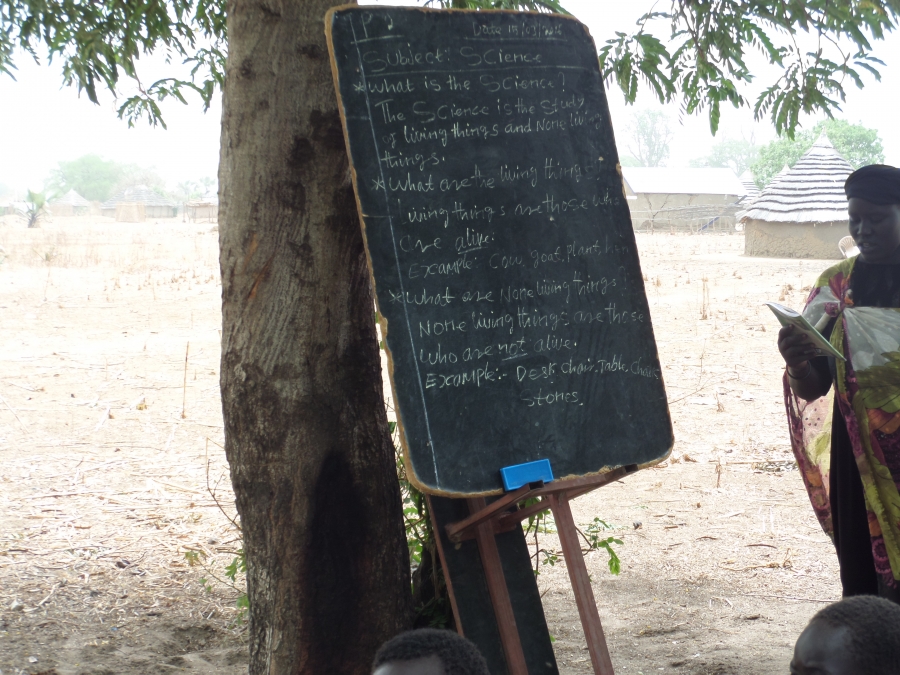 P2
Date 19/03/2016
Subject: Science
* What is the Science?
The Science is the study
of living things and None living
things.
* What are the living things
Living things are those who
are alive.
Example: Cow, goat, plant, hen
* What are None living things?
None living things are those
who are not alive.
Example:- Desk Chair, Table, Chalk
Stones.